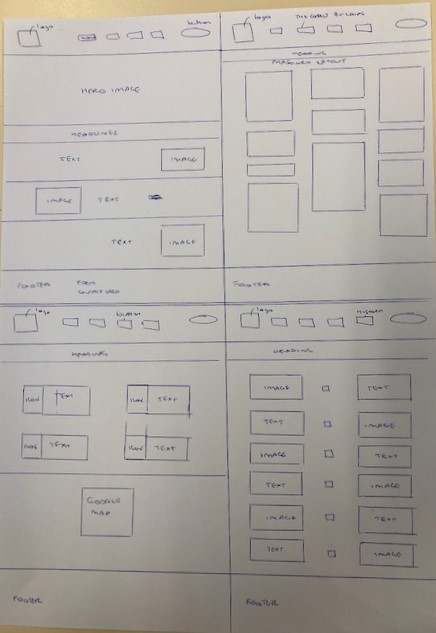 Logo
button
HERO IMAGE
HEADLINES
TEXT
IMAGE
IMAGE
TEXT
TEXT
IMAGE
FOOTER
FORM
CONTACT AREA
Logo
THE GREEN BUILDING
HEADING
MASONRY LAYOUT
FOOTER
Logo
HEADINGS
ICON
TEXT
ICON
TEXT
ICON
TEXT
ICON
TEXT
GOOGLE
MAP
FOOTER
Logo
HEADING
IMAGE
TEXT
TEXT
IMAGE
IMAGE
TEXT
TEXT
IMAGE
IMAGE
TEXT
TEXT
IMAGE
FOOTER